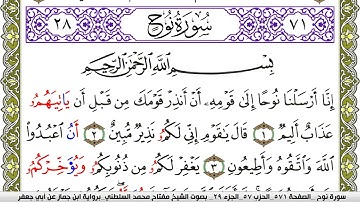 ٢٨ سُورَةُ نُوحٍ ٧١
بِسْمِ اللَّهِ الرَّحْمَٰنِ الرَّحِيمِ
إِنَّا أَرْسَلْنَا نُوحًا إِلَىٰ قَوْمِهِۦ أَنْ أَنذِرْ قَوْمَكَ مِن قَبْلِ أَن يَاتِيَهُمُۥ
عَذَابٌ أَلِيمٌ ١ قَالَ يَٰقَوْمِ إِنِّي لَكُمُۥ نَذِيرٌ مُّبِينٌ ٢ أَنُ اعْبُدُوا
اللَّهَ وَاتَّقُوهُ وَأَطِيعُونِ ٣ يَغْفِرْ لَكُمُۥ مِن ذُنُوبِكُمُۥ وَيُوَخِّرْكُمُۥ
سورة نوح - الصفحة ٥٧١ الحزب ٥٧ الجزء ٢٩ - بصوت الشيخ مفتاح محمد السلطني برواية ابن جماز عن أبي جعفر